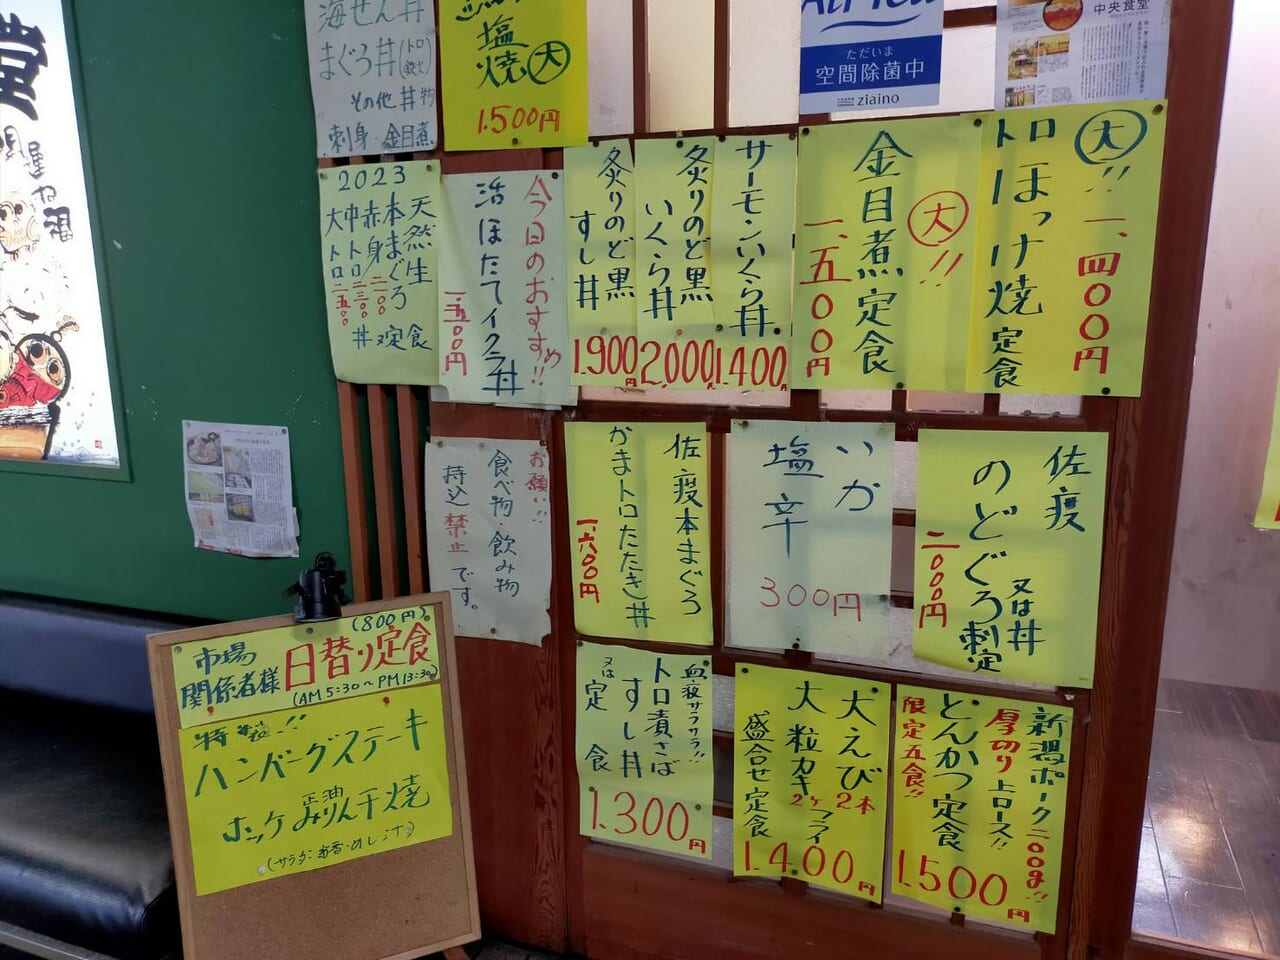 堂
海せん丼
まぐろ丼(トロ
その他丼物
刺身・金目煮
塩
焼大
1.500円
Air Tea
ただいま
空間除菌中
ziaino
中央食堂
2023
天然生
本まぐろ
赤身二一〇〇
中トロ二三〇〇
大トロ二五〇〇
丼又定食
今日のおすすめ!!
活ほたてイクラ丼
一、五〇〇円
炙りのど黒
すし丼
1.900円
炙りのど黒
いくら丼
2,000
サーモンいくら丼
1.400円
大!!
金目煮定食
一、五〇〇円
大!!
トロほっけ焼定食
一、四〇〇円
お願い!!
食べ物・飲み物
持込禁止です。
佐渡本まぐろ
かまトロたたき丼
一、六〇〇円
いか
塩辛
300円
佐渡
のどぐろ刺定
又は丼
二、〇〇〇円
血液サラサラ!!
トロ漬さば
すし丼
又は定食
1.300円
大えび2本
大粒カキ2ケフライ
盛合せ定食
1.400円
新潟ポーク二〇〇g!!
厚切り上ロース!!
とんかつ定食
限定五食!!
1.500円
(800円)
市場
関係者様
日替り定食
(AM5:30~PM13:30)
特製!!
ハンバーグステーキ
ホッケ正油みりん干焼
(サラダ・お香・めし・汁)